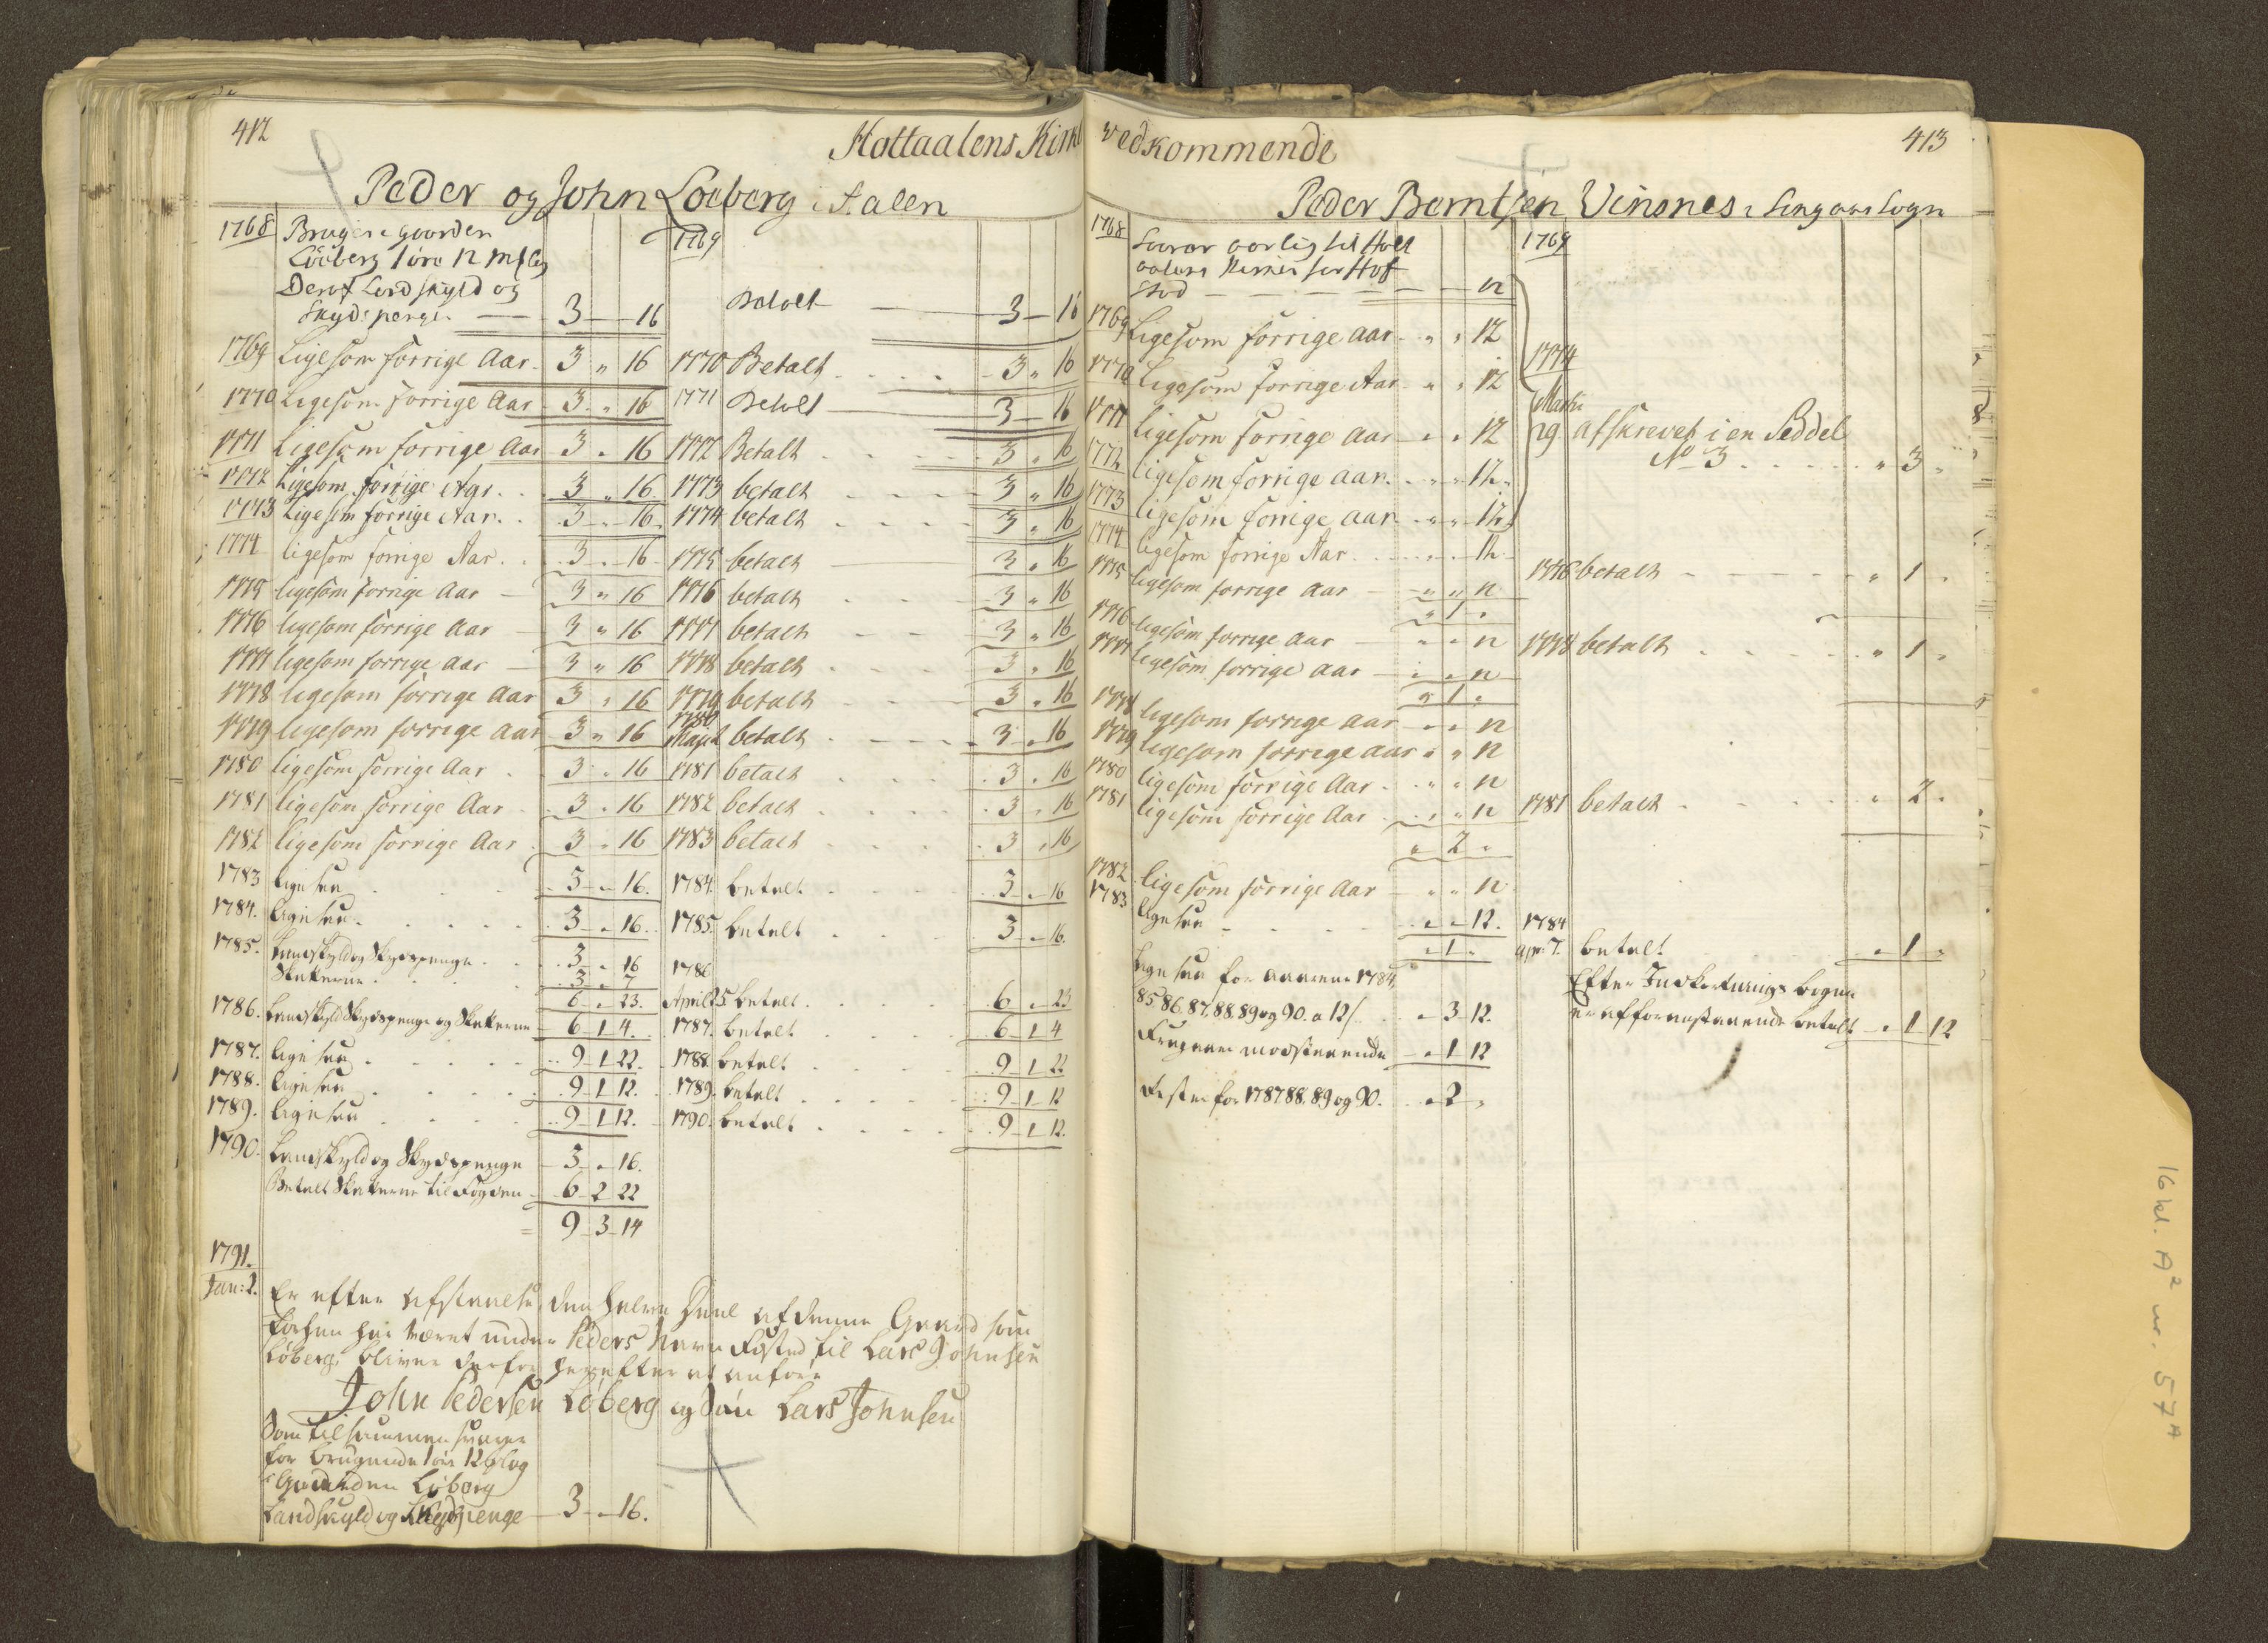 412
Hottaalens Kirke
Peder og John Loeberg i Aalen
1768 Bruger i gaarden
Löeberg 1 öre 12 mkl og
Deraf Landskyld og
Skydspenge — 3 — 16 1769 Betalt — 3 — 16
1769 Ligesom forrige Aar. 3 „ 16 1770 Betalt 3 „ 16
1770 Ligesom forrige Aar 3 „ 16 1771 Betalt 3 — 16
1771 Ligesom forrige Aar 3 „ 16 1772 Betalt 3 „ 16
1772 Ligesom forrige Aar. 3 „ 16 1773 betalt 3 „ 16
1773 Ligesom forrige Aar. 3 „ 16 1774 betalt 3 „ 16
1774 ligesom forrige Aar. 3 „ 16 1775 betalt 3 „ 16
1775 ligesom forrige Aar 3 „ 16 1776 betalt 3 „ 16
1776 ligesom forrige Aar 3 „ 16 1777 betalt 3 „ 16
1777 ligesom forrige Aar 3 „ 16 1778 betalt 3 „ 16
1778 ligesom forrige Aar 3 „ 16 1779 betalt 3 „ 16
1779 ligesom forrige Aar 3 „ 16 1780 Maji 2 betalt 3 „ 16
1780 ligesom forrige Aar 3 „ 16 1781 betalt 3 „ 16
1781 ligesom forrige Aar 3 „ 16 1782 betalt 3 „ 16
1782 ligesom forrige Aar 3 „ 16 1783 betalt 3 „ 16
1783 ligesaa 3 „ 16. 1784. betalt 3 „ 16
1784. ligesaa 3 „ 16. 1785. betalt 3 „ 16.
1785. Landskyld og Skydspenge 3 „ 16 1786
Skatterne 3 „ 7
6 „ 23. April 25 betalt 6 „ 23
1786. Landskyld Skydspenge og Skatterne 6 1 4. 1787. betalt 6 1 4
1787. ligesaa 9 1 22. 1788 betalt 9 1 22
1788. ligesaa 9 1 12. 1789. betalt 9 1 12
1789. ligesaa 9 1 12. 1790. betalt 9 1 12.
1790. Landskyld og Skydspenge 3 „ 16.
Betalt Skatterne til Fogden 6 2 22
9 3 14
1791.
Jan: 2. Er efter Afstaaelse den halve Deel af denne Gaard som
forhen har været under Peders Navn Fæsted til Lars Johnsen
Löberg, bliver derfor herefter at anföre
John Pedersen Löberg og Sön Lars Johnsen
Som tilsammen svarer
for brugende 1 öre 12 mkl og
i Gaarden Löberg
Landskyld og Skydspenge 3 „ 16.
Vedkommende
413
Peder Berntsen Vinsnes i Singaas Sogn
1768 Svarer aarlig til Holt
aalens Kirke for Hof
Stod — 12 1769
1769 Ligesom forrige aar „ „ 12
1770 Ligesom forrige Aar „ „ 12 1774
1771 Ligesom forrige aar „ „ 12 Martii 29 afskrevet i en Seddel
No 3 „ 3 „
1772 ligesom forrige aar. „ „ 12
1773 ligesom forrige aar „ „ 12
1774 ligesom forrige Aar „ „ 12
1775 ligesom forrige aar „ „ 12 1776 betalt „ 1 „
„ 1 „
1776 ligesom forrige aar „ „ 12
1777 ligesom forrige aar „ „ 12 1778 betalt „ 1 „
„ 1 „
1778 ligesom forrige aar „ „ 12
1779 ligesom forrige aar „ „ 12
1780 ligesom forrige Aar „ „ 12
1781 ligesom forrige Aar „ „ 12 1781 betalt „ 2 „
„ 2 „
1782 ligesom forrige Aar „ „ 12
1783 ligesaa „ „ 12. 1784
„ 1 „ apr: 7. betalt „ 1 „
ligesaa for Aarene 1784,
85. 86. 87. 88. 89 og 90. a 12 s. „ 3 12.
Efter Indkortnings bogen
er af foranstaaende betalt „ 1 12
Fragaar modstaaende „ 1 12
Rester for 1787 88. 89 og 90. „ 2 „
16 kl. A² nr. 57ᴬ